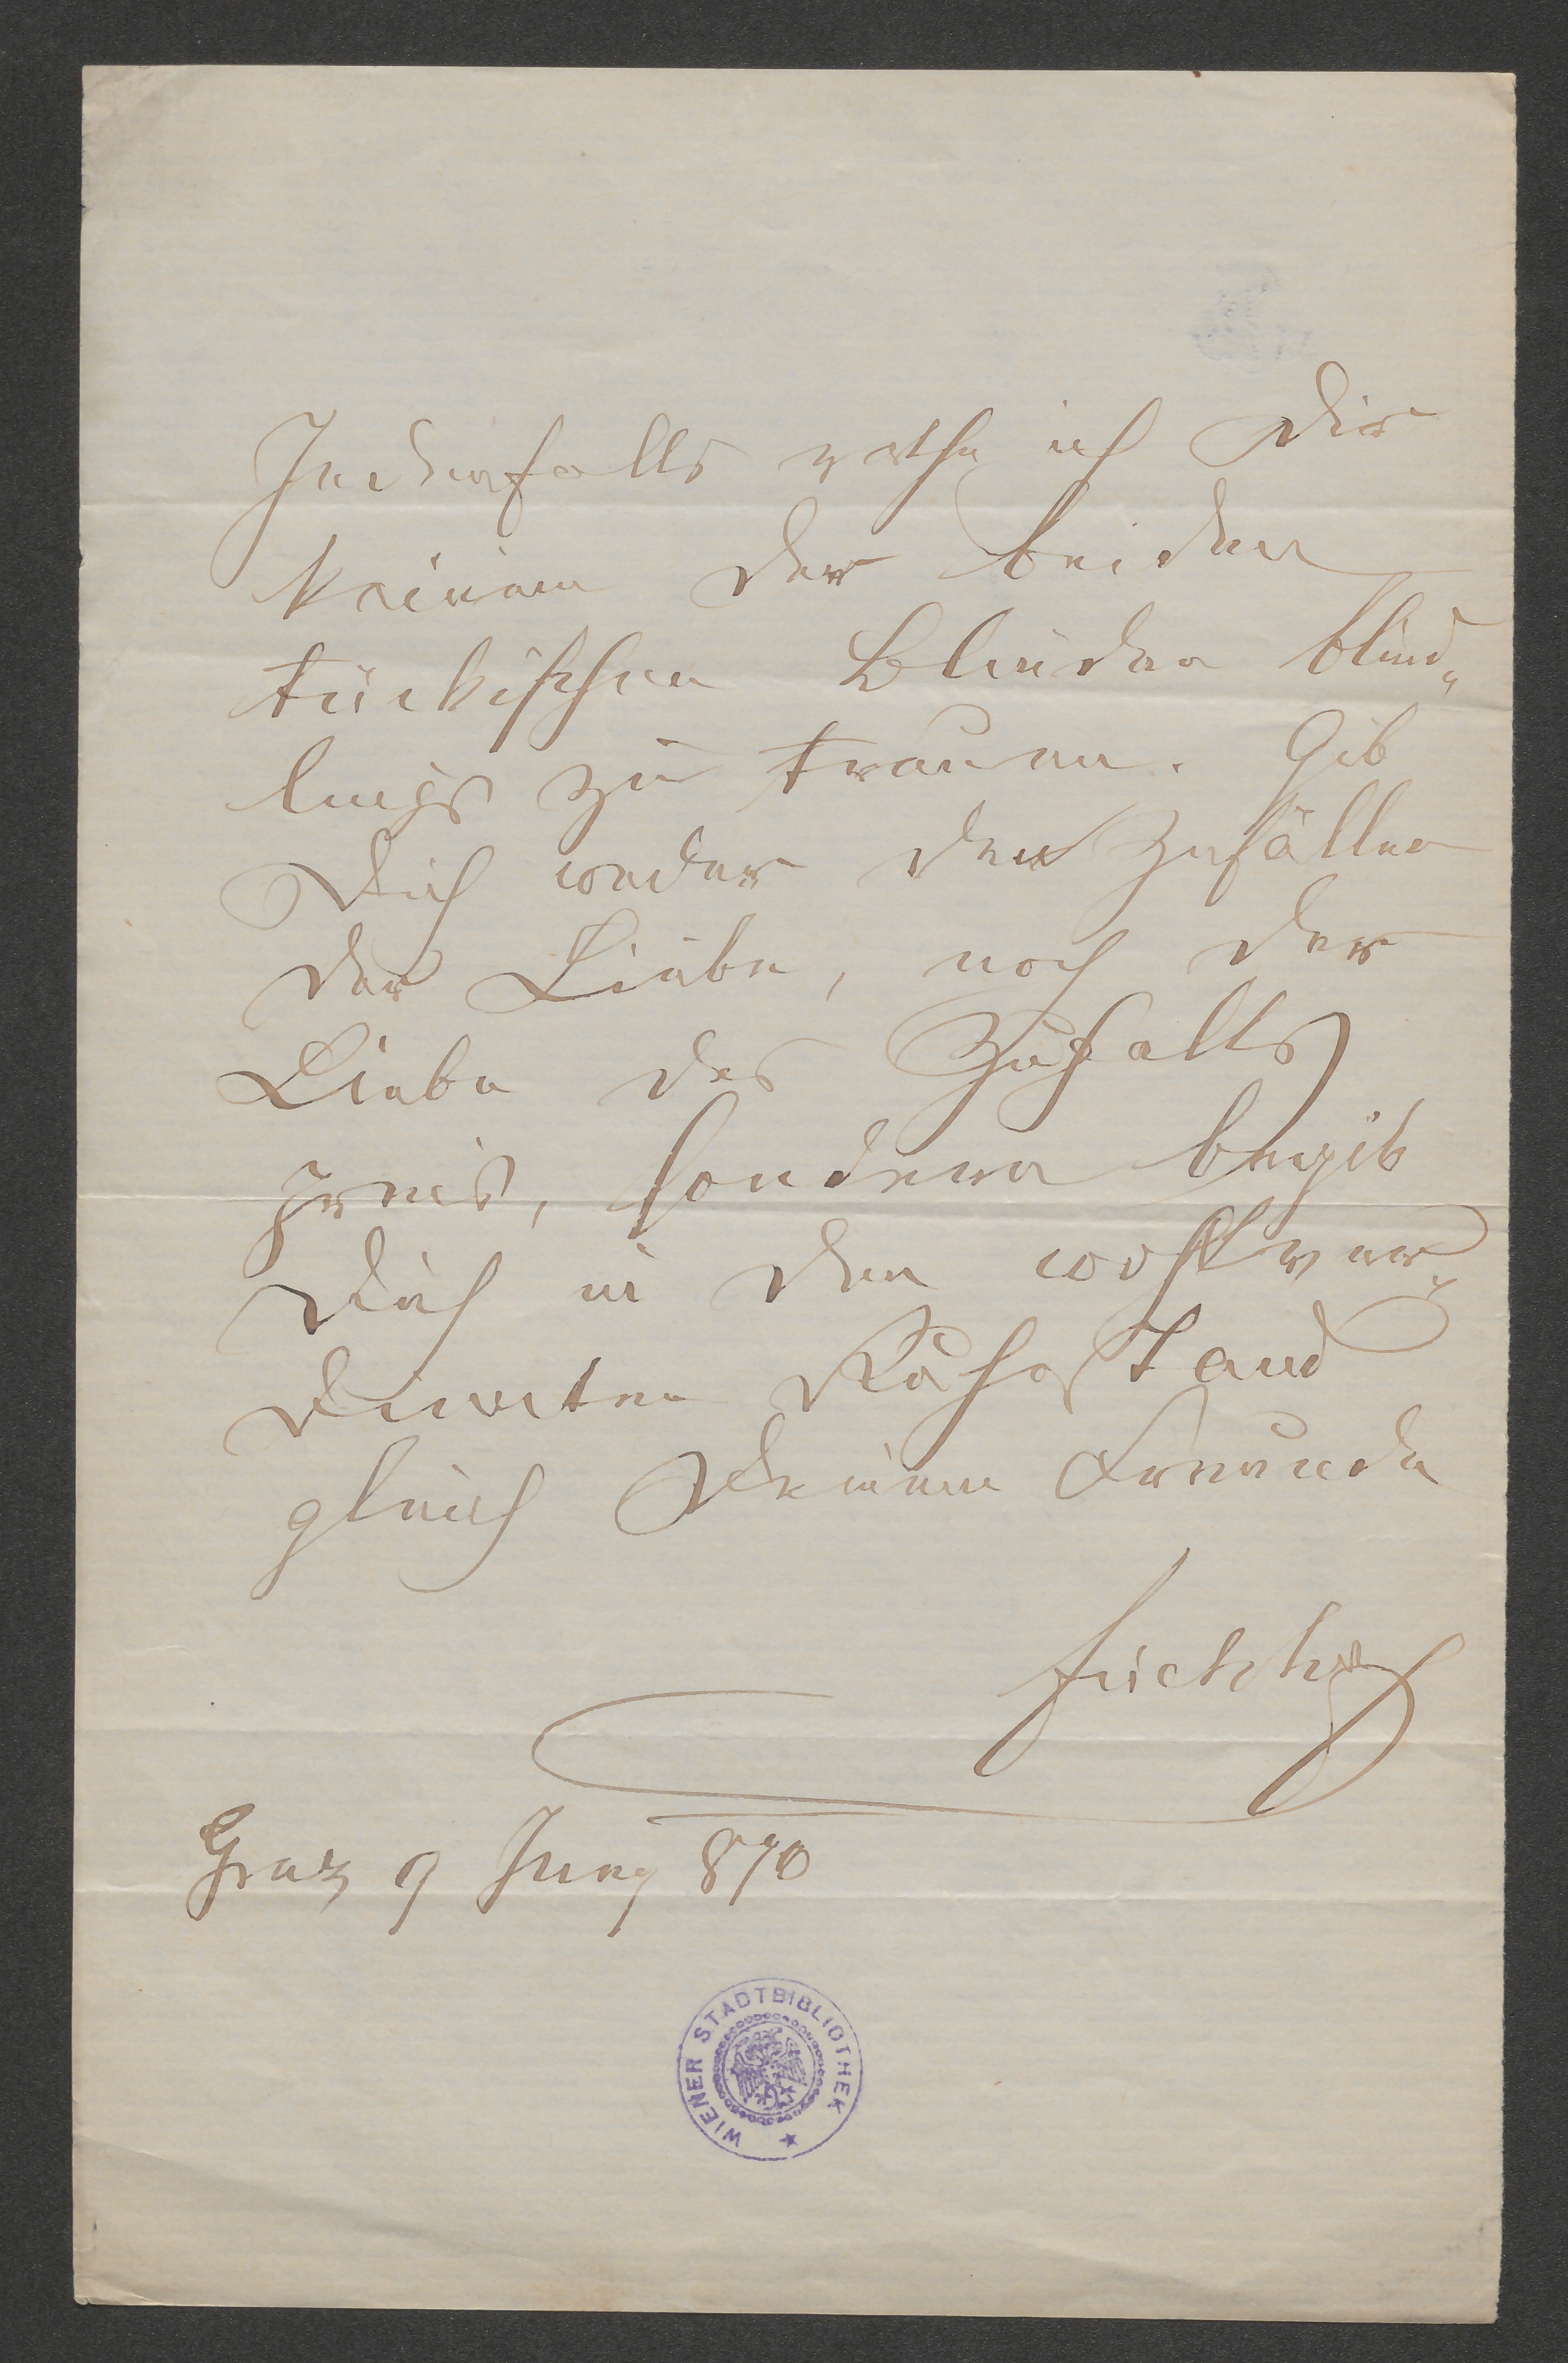 Jedenfalls rathe ich Dir
keinem der beiden
tückischen Blinden blind„
lings zu trauen. Gib
Dich weder den Zufällen
der Liebe, noch der
Liebe des Zufalls
preis, sondern begib
Dich in den wohlver„
dienten Ruhestand
gleich Deinem Freunde
Graz 9 Juny 870
WIENER STADTBIBLIOTHEK